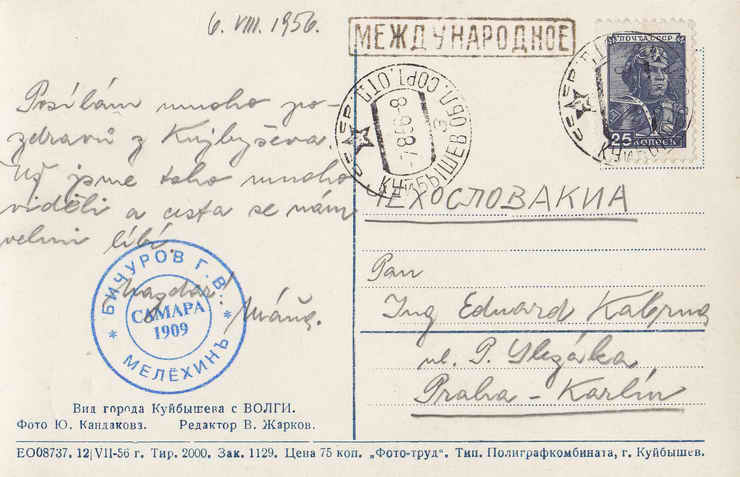 6. VIII. 1956.
МЕЖДУНАРОДНОЕ
ПОЧТА СССР
25 КОПЕЕК
КУЙБЫШЕВ ОБЛ. СОРТ. ОТД.
-7 8 56 - 8
Posílám mnoho po-
zdravů z Kujbyševa.
Už jsme toho mnoho
viděli a cesta se nám
velmi líbí.
Nazdar!
Máňa.
ЧЕХОСЛОВАКИА
Pan
Ing Eduard
ul. P.
Praha - Karlín
БИЧУРОВ Г. В.
САМАРА
1909
МЕЛЁХИНЪ
Вид города Куйбышева с ВОЛГИ.
Фото Ю. Кандакова. Редактор В. Жарков.
ЕО08737. 12|VII-56 г. Тир. 2000. Зак. 1129. Цена 75 коп. „Фото-труд“. Тип. Полиграфкомбината, г. Куйбышев.